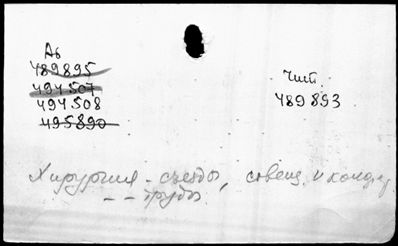 Аб
489895
494507
494508
495890
Чит.
489893
Хирургия - съезды, совещ. и конф.
- - труды